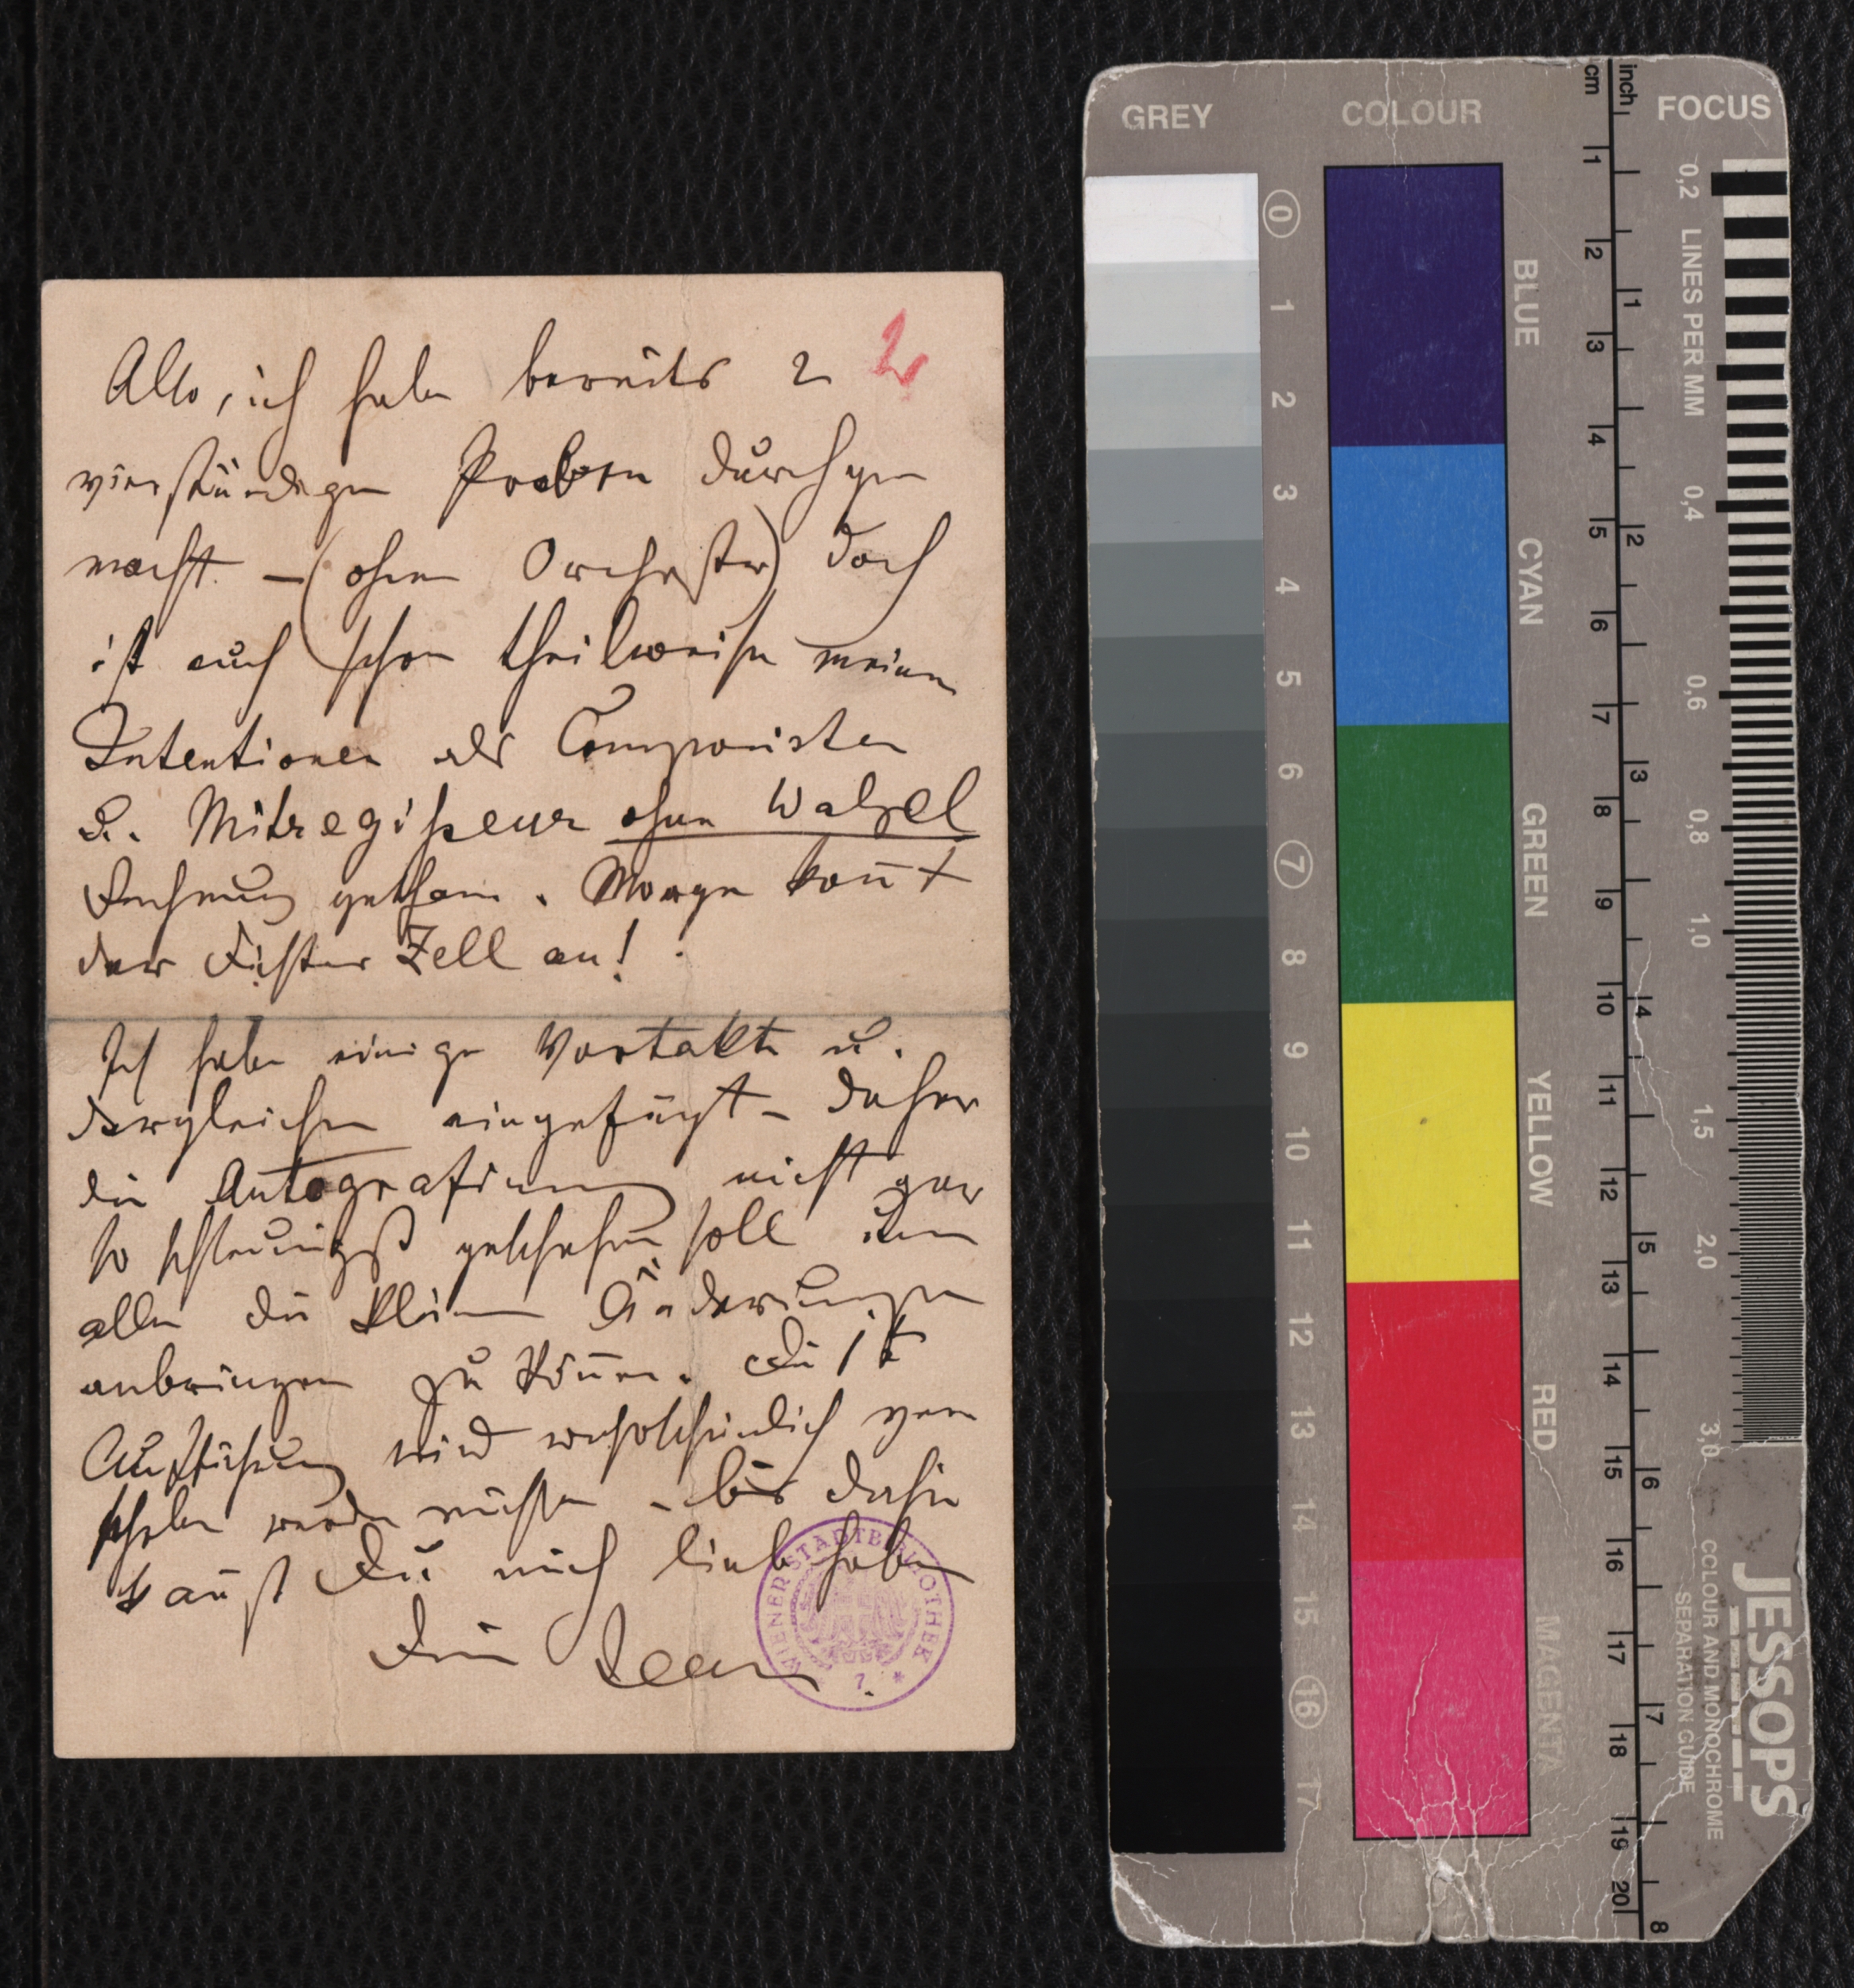 Also, ich habe bereits 2
2
vierstündigen Proben durchge
macht. – (ohne Orchester) doch
ist auch schon theilweise meinen
Intentionen als Componisten
u. Mitregißeur ohne Walzel
Rechnung gethan. Morgen kom̄t
der Dichter Zell an!
Ich habe einige Vortakte u.
dergleichen eingefügt – daher
die Autografirung nicht gar
so schleunigst geschehen soll um
alle die kleinen Änderungen
anbringen zu kön̄en. Die 1te
Aufführung wird wahrscheinlich ver
schoben werden müssen – bis dahin
kan̄st Du mich lieb haben
Dein Jean
WIENER STADTBIBLIOTHEK
7.
GREY
COLOUR
FOCUS
0
1
2
3
4
5
6
7
8
9
10
11
12
13
14
15
16
17
BLUE
CYAN
GREEN
YELLOW
RED
MAGENTA
cm
1
2
3
4
5
6
7
8
9
10
11
12
13
14
15
16
17
18
19
20
inch
1
2
3
4
5
6
7
8
0,2 LINES PER MM
0,4
0,6
0,8
1,0
1,5
2,0
3,0
JESSOPS
COLOUR AND MONOCHROME
SEPARATION GUIDE